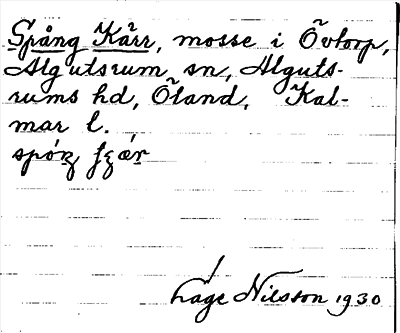 Spång Kärr, mosse i Övtorp,
Algutsrum sn, Alguts-
rums hd, Öland, Kal-
mar l.
Låge Nilsson 1930